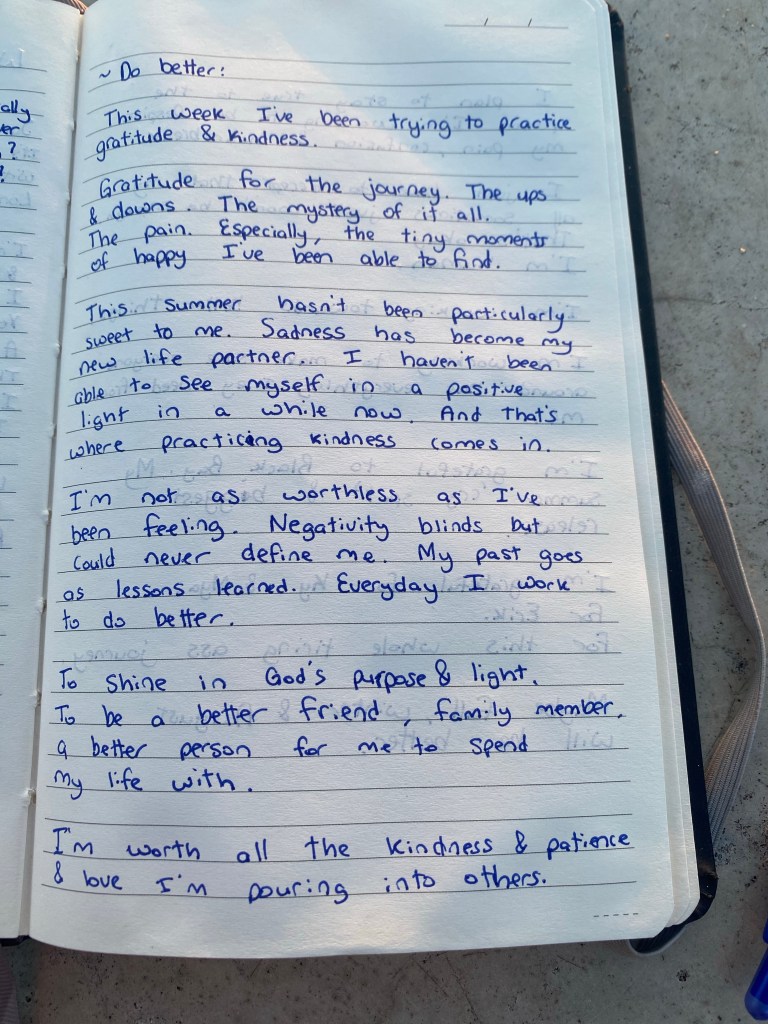 ally
er
?
?
~ Do better:
This week I've been trying to practice
gratitude & kindness.
Gratitude for the journey. The ups
& downs. The mystery of it all.
The pain. Especially, the tiny moments
of happy I've been able to find.
This summer hasn't been particularly
sweet to me. Sadness has become my
new life partner. I haven't been
able to see myself in a positive
light in a while now. And that's
where practicing kindness comes in.
I'm not as worthless as I've
been feeling. Negativity blinds but
could never define me. My past goes
as lessons learned. Everyday I work
to do better.
To shine in God's purpose & light.
To be a better friend, family member,
a better person for me to spend
my life with.
I'm worth all the kindness & patience
& love I'm pouring into others.